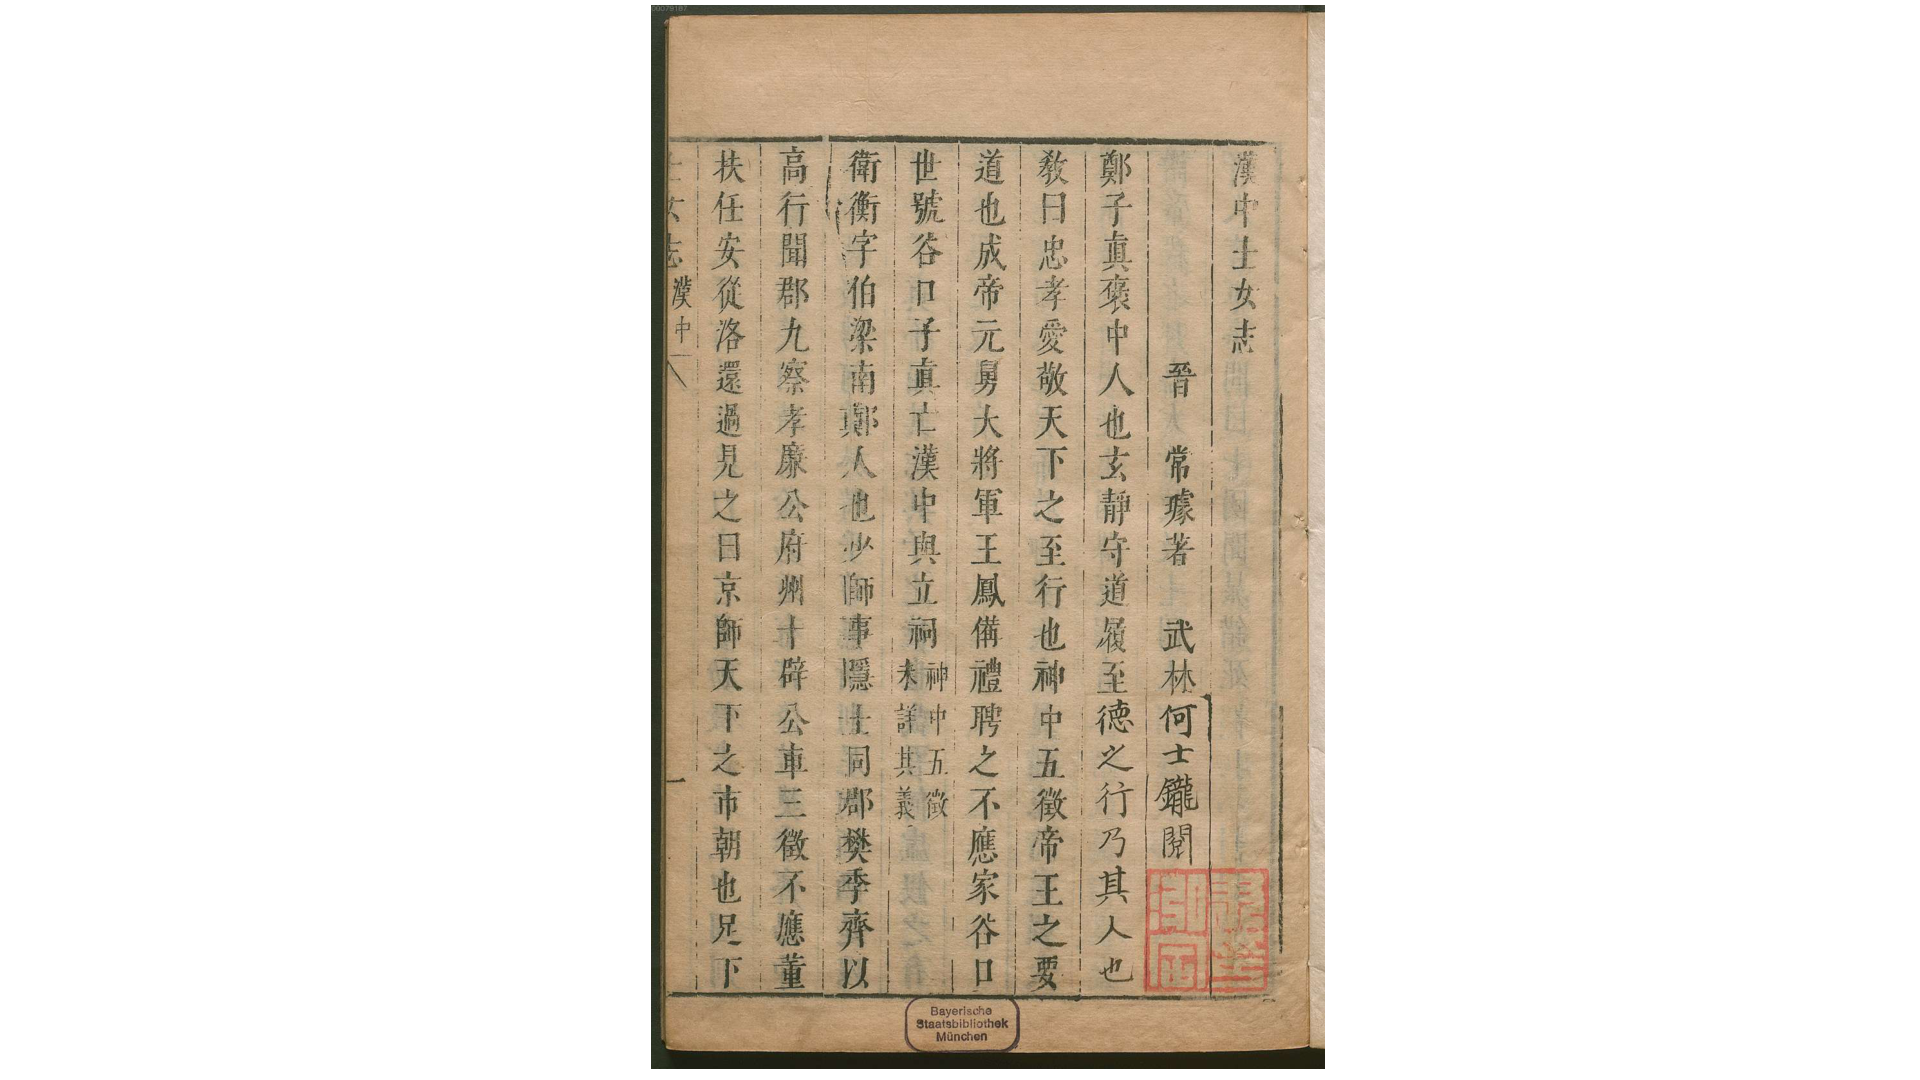 漢中士女志
晉 常璩著 武林何士鑨閱
鄭子眞褒中人也玄靜守道履至德之行乃其人也
敎曰忠孝愛敬天下之至行也神中五徵帝王之要
道也成帝元舅大將軍王鳳備禮聘之不應家谷口
世號谷口子眞亡漢中與立祠神中五徵未詳其義
衛衡字伯梁南鄭人也少師事隱士同郡樊季齊以
高行聞郡九察孝廉公府州十辟公車三徵不應董
扶任安從洛還過見之曰京師天下之市朝也足下
士女志 漢中 一
Bayerische
Staatsbibliothek
München